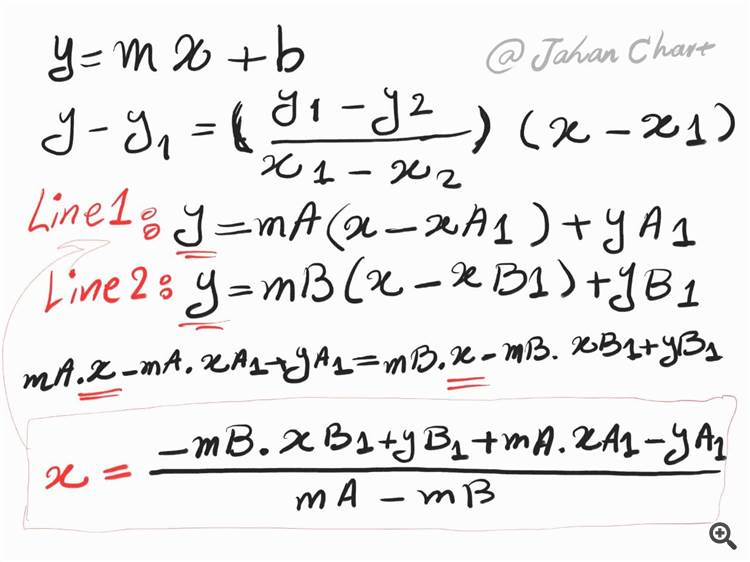 y = mx + b
@ Jahan Chart
y - y1 = ( (y1 - y2) / (x1 - x2) ) (x - x1)
Line1: y = mA(x - xA1) + yA1
Line2: y = mB(x - xB1) + yB1
mA.x - mA.xA1 + yA1 = mB.x - mB.xB1 + yB1
x = (-mB.xB1 + yB1 + mA.xA1 - yA1) / (mA - mB)